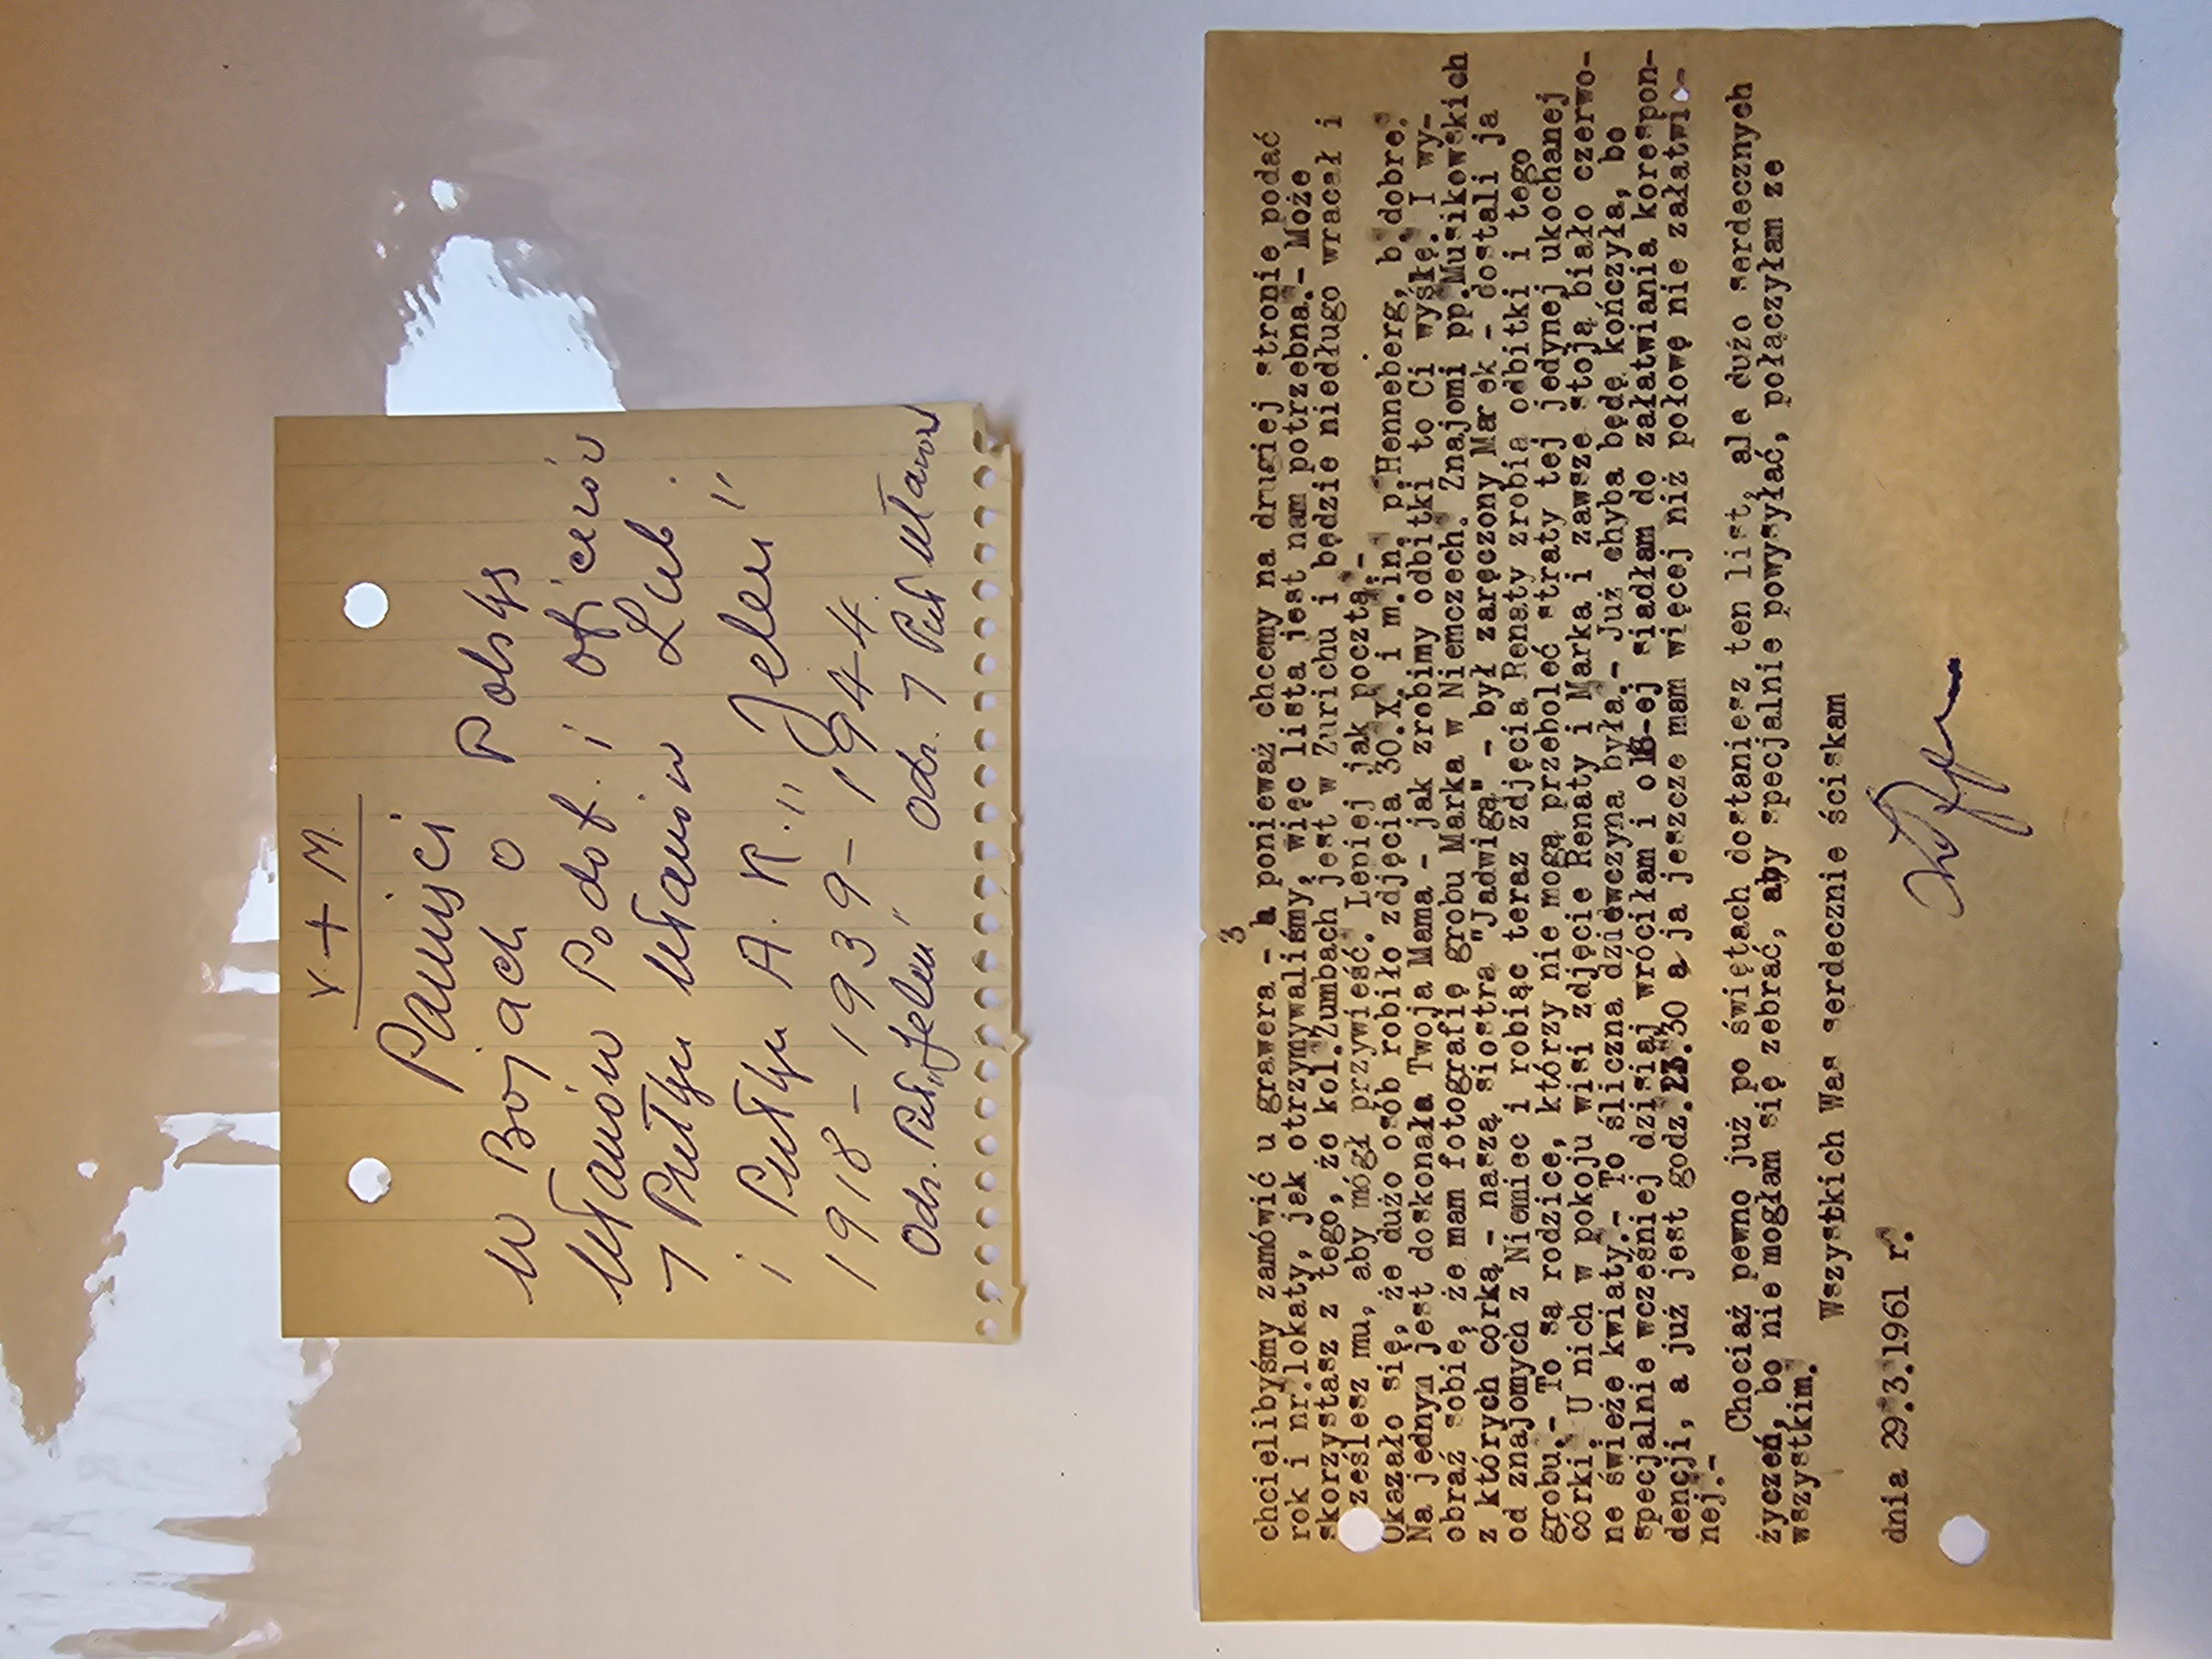 V + M.
Pamięci
w Bojach o Polskę
Ułanów Podof. i oficerów
7 Pułku Ułanów Lub.
i Pułku A. K. "Jeleń"
1918 – 1939 – 1944.
Odz. Puł. "Jeleń" Odz. 7 Puł Ułanów
3
chcielibyśmy zamówić u grawera - a ponieważ chcemy na drugiej stronie podać
rok i nr.lokaty, jak otrzymywaliśmy, więc lista jest nam potrzebna.- Może
skorzystasz z tego, że kol.Zumbach jest w Zurichu i będzie niedługo wracał i
ześlesz mu, aby mógł przywieść. Lepiej jak pocztą.-
Okazało się, że dużo osób robiło zdjęcia 30.X i m.in. p.Henneberg, b.dobre.
Na jednym jest doskonała Twoja Mama - jak zrobimy odbitki to Ci wyślę. I wy-
obraź sobie, że mam fotografię grobu Marka w Niemczech. Znajomi pp.Musikowskich
z których córką - naszą siostrą "Jadwigą" - był zaręczony Marek - dostali ja
od znajomych z Niemiec i robiąc teraz zdjęcia Renaty zrobią odbitki i tego
grobu.- To są rodzice, którzy nie mogą przeboleć straty tej jedynej ukochanej
córki. U nich w pokoju wisi zdjęcie Renaty i Marka i zawsze stoją biało czerwo-
ne świeże kwiaty.- To śliczna dziewczyna była.- Już chyba będę kończyła, bo
specjalnie wcześniej dzisiaj wróciłam i o 18-ej siadłam do załatwiania korespon-
dencji, a już jest godz.23.30 a ja jeszcze mam więcej niż połowę nie załatwi-
nej.-
Chociaż pewno już po świętach dostaniesz ten list, ale dużo serdecznych
życzeń, bo nie mogłam się zebrać, aby specjalnie powysyłać, połączyłam ze
wszystkim.
Wszystkich Was serdecznie ściskam
dnia 29.3.1961 r.